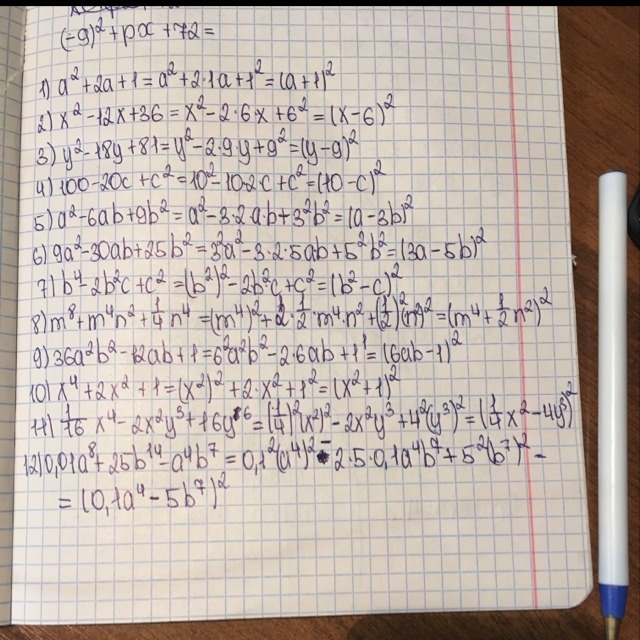 (-9)² + px + 72 =
1) a² + 2a + 1 = a² + 2·1a + 1² = (a+1)²
2) x² - 12x + 36 = x² - 2·6·x + 6² = (x-6)²
3) y² - 18y + 81 = y² - 2·9·y + 9² = (y-9)²
4) 100 - 20c + c² = 10² - 10·2c + c² = (10-c)²
5) a² - 6ab + 9b² = a² - 3·2ab + 3²b² = (a-3b)²
6) 9a² - 30ab + 25b² = 3²a² - 3·2·5ab + 5²b² = (3a-5b)²
7) b⁴ - 2b²c + c² = (b²)² - 2b²c + c² = (b²-c)²
8) m⁸ + m⁴n² + 1/4 n⁴ = (m⁴)² + 2·1/2·m⁴·n² + (1/2)²(n²)² = (m⁴ + 1/2 n²)²
9) 36a²b² - 12ab + 1 = 6²a²b² - 2·6ab + 1¹ = (6ab-1)²
10) x⁴ + 2x² + 1 = (x²)² + 2·x² + 1² = (x²+1)²
11) 1/16 x⁴ - 2x²y³ + 16y⁶ = (1/4)²(x²)² - 2x²y³ + 4²(y³)² = (1/4 x² - 4y³)²
12) 0,01a⁸ + 25b¹⁴ - a⁴b⁷ = 0,1²(a⁴)² - 2·5·0,1a⁴b⁷ + 5²(b⁷)² -
= (0,1a⁴ - 5b⁷)²